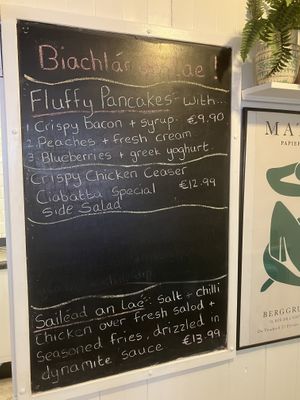 Biachlár an lae!
Fluffy Pancakes - with...
1 Crispy bacon + syrup. €9.90
2 Peaches + fresh cream
3 Blueberries + greek yoghurt.
Crispy Chicken Ceaser
Ciabatta Special €12.99
Side Salad
Sailéad an Lae: Salt + Chilli
Chicken over fresh salad +
Seasoned fries, drizzled in
dynamite sauce €13.99
MAT
PAPIER
BERGGRU